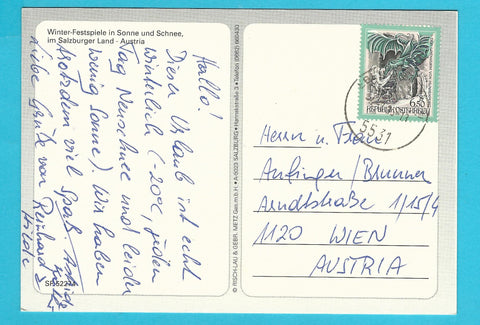 Winter-Festspiele in Sonne und Schnee,
im Salzburger Land - Austria
Hallo!
Dieser Urlaub ist echt
winterlich (-20°C, jeden
Tag Neuschnee und leider
wenig Sonne). Wir haben
trotzdem viel Spaß.
Liebe Grüße von Reinhard &
Hilde
© RISCH-LAU & GEBR. METZ Ges.m.b.H • A-5023 SALZBURG
6.50
REPUBLIK ÖSTERREICH
5531
Herrn u. Frau
Aufinger/Brunner
Arndtstraße 1/15/4
1120 WIEN
AUSTRIA